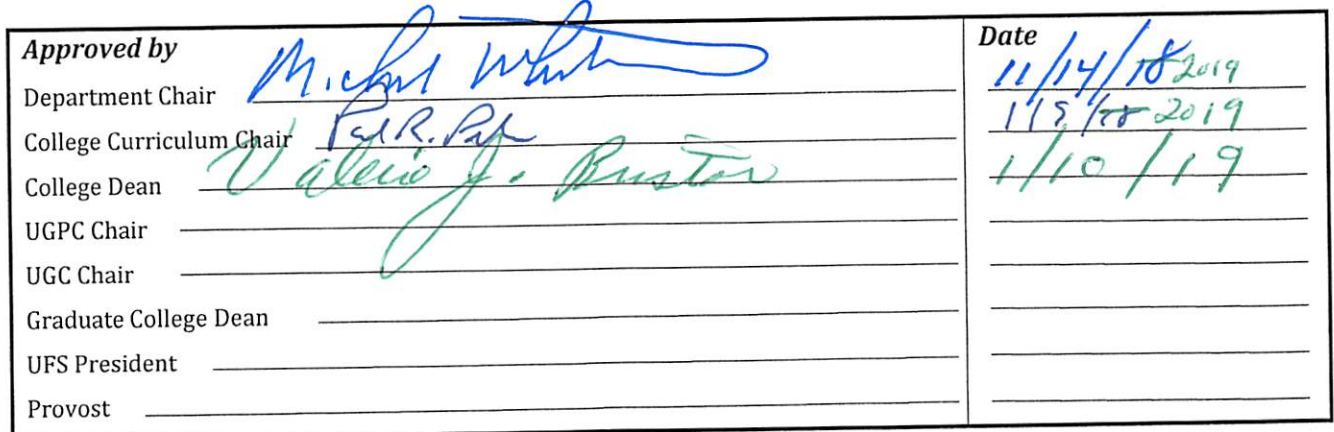 Approved by Date
Department Chair 11/14/18 2019
College Curriculum Chair Paul R. 2019
College Dean Valerie J. Bristor 1/10/19
UGPC Chair
UGC Chair
Graduate College Dean
UFS President
Provost